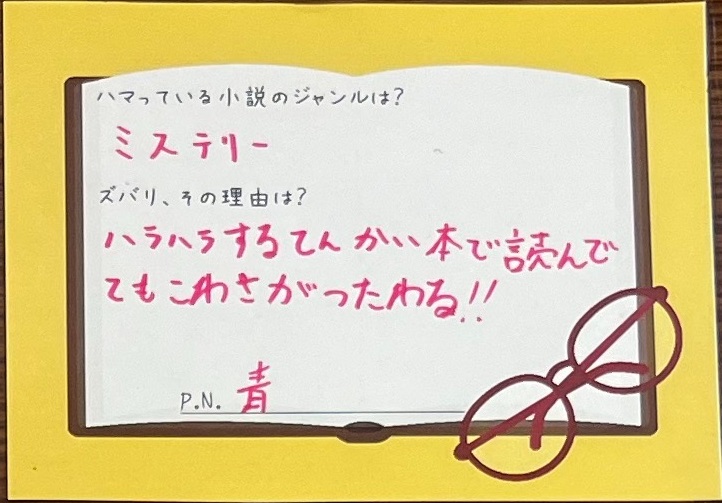 ハマっている小説のジャンルは?
ミステリー
ズバリ、その理由は?
ハラハラするてんかい本で読んで
てもこわさがつたわる!!
P.N. 青